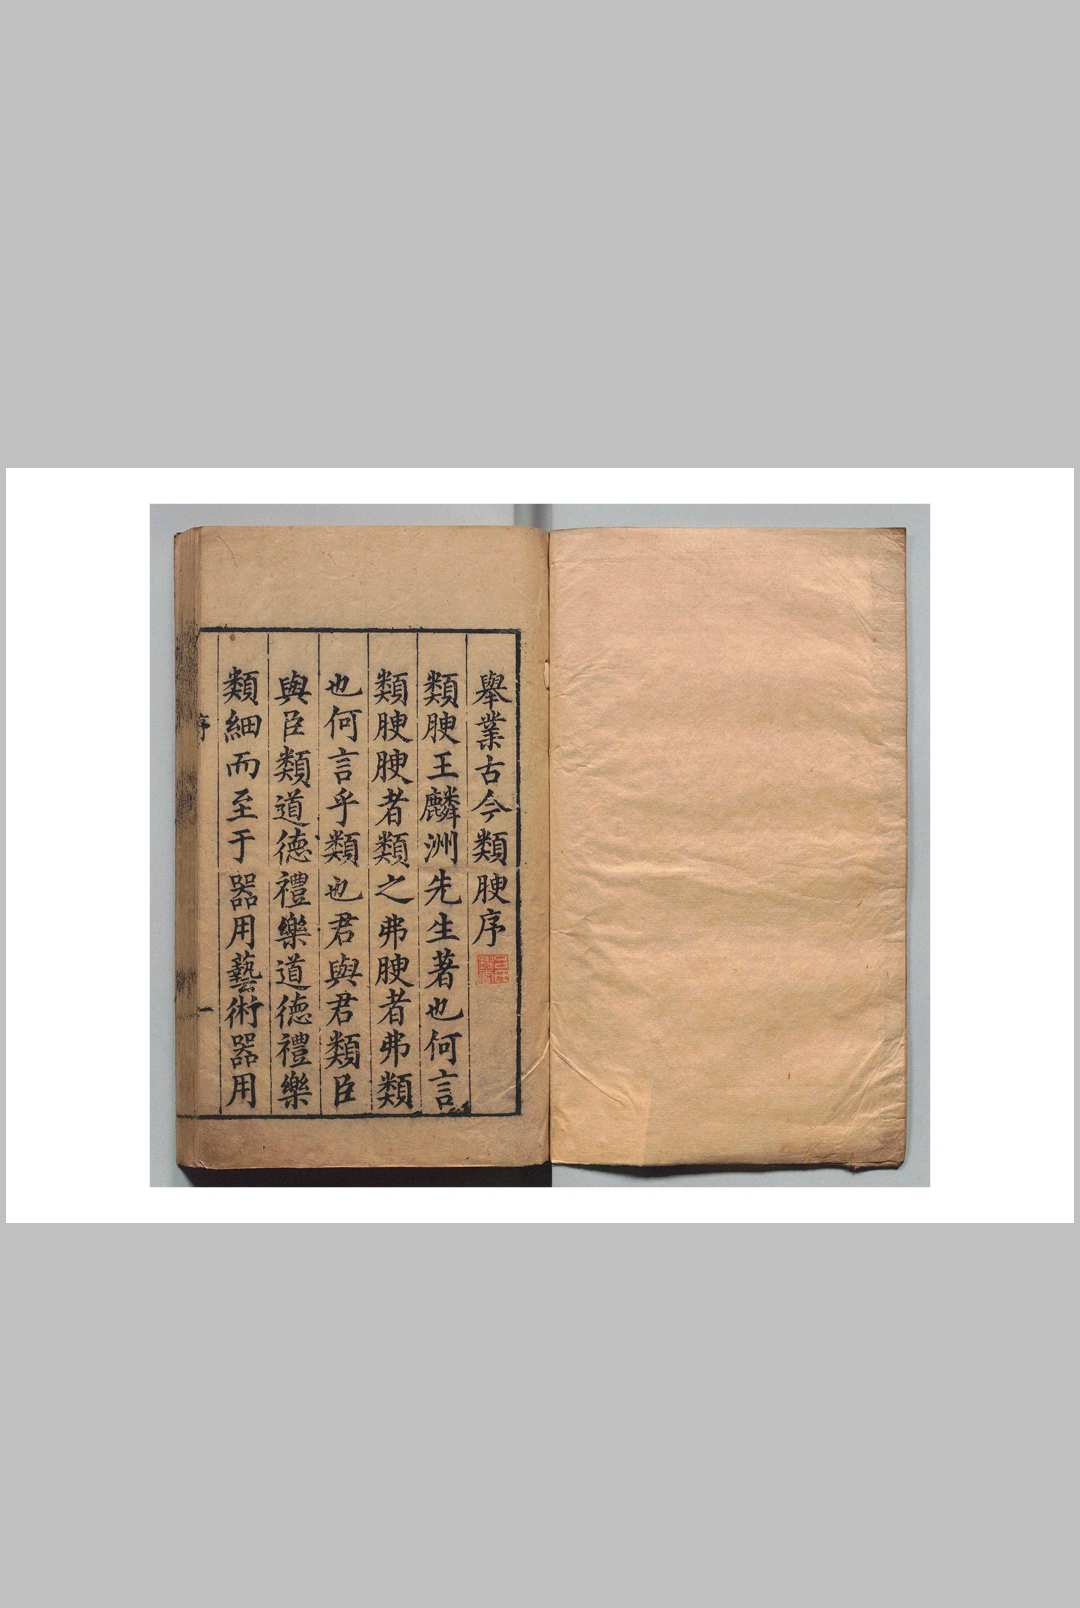 舉業古今類腴序
類腴王麟洲先生著也何言
類腴腴者類之弗腴者弗類
也何言乎類也君與君類臣
與臣類道德禮樂道德禮樂
類細而至于器用藝術器用
序
一